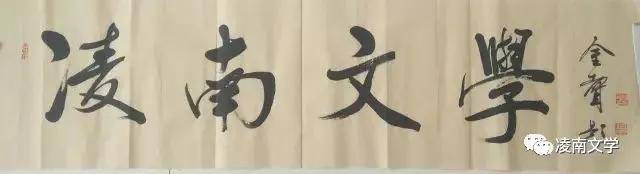 凌南文學
金聲題
凌南文学